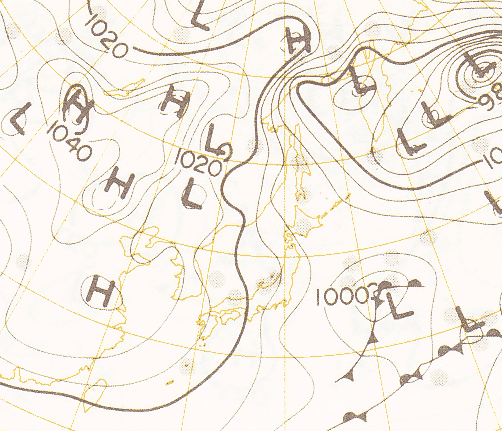 1020
L
H
L
L
98
H
H
L
L
L
1040
L
1020
10
H
L
L
H
1000
L
L